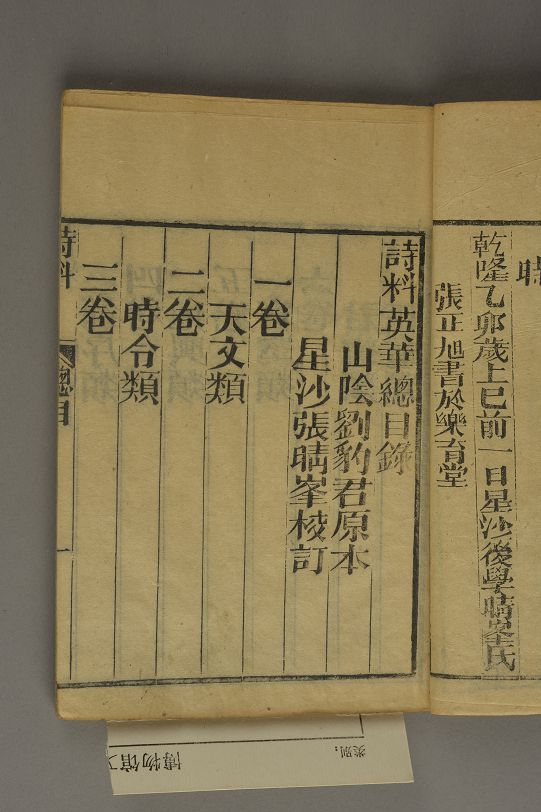 乾隆乙卯歲上巳前一日星沙後學晴峯氏
張正旭書於樂育堂
詩料英華總目錄
山陰劉豹君原本
星沙張晴峯校訂
一卷
天文類
二卷
時令類
三卷
詩料
總目
一
博物馆
类别: